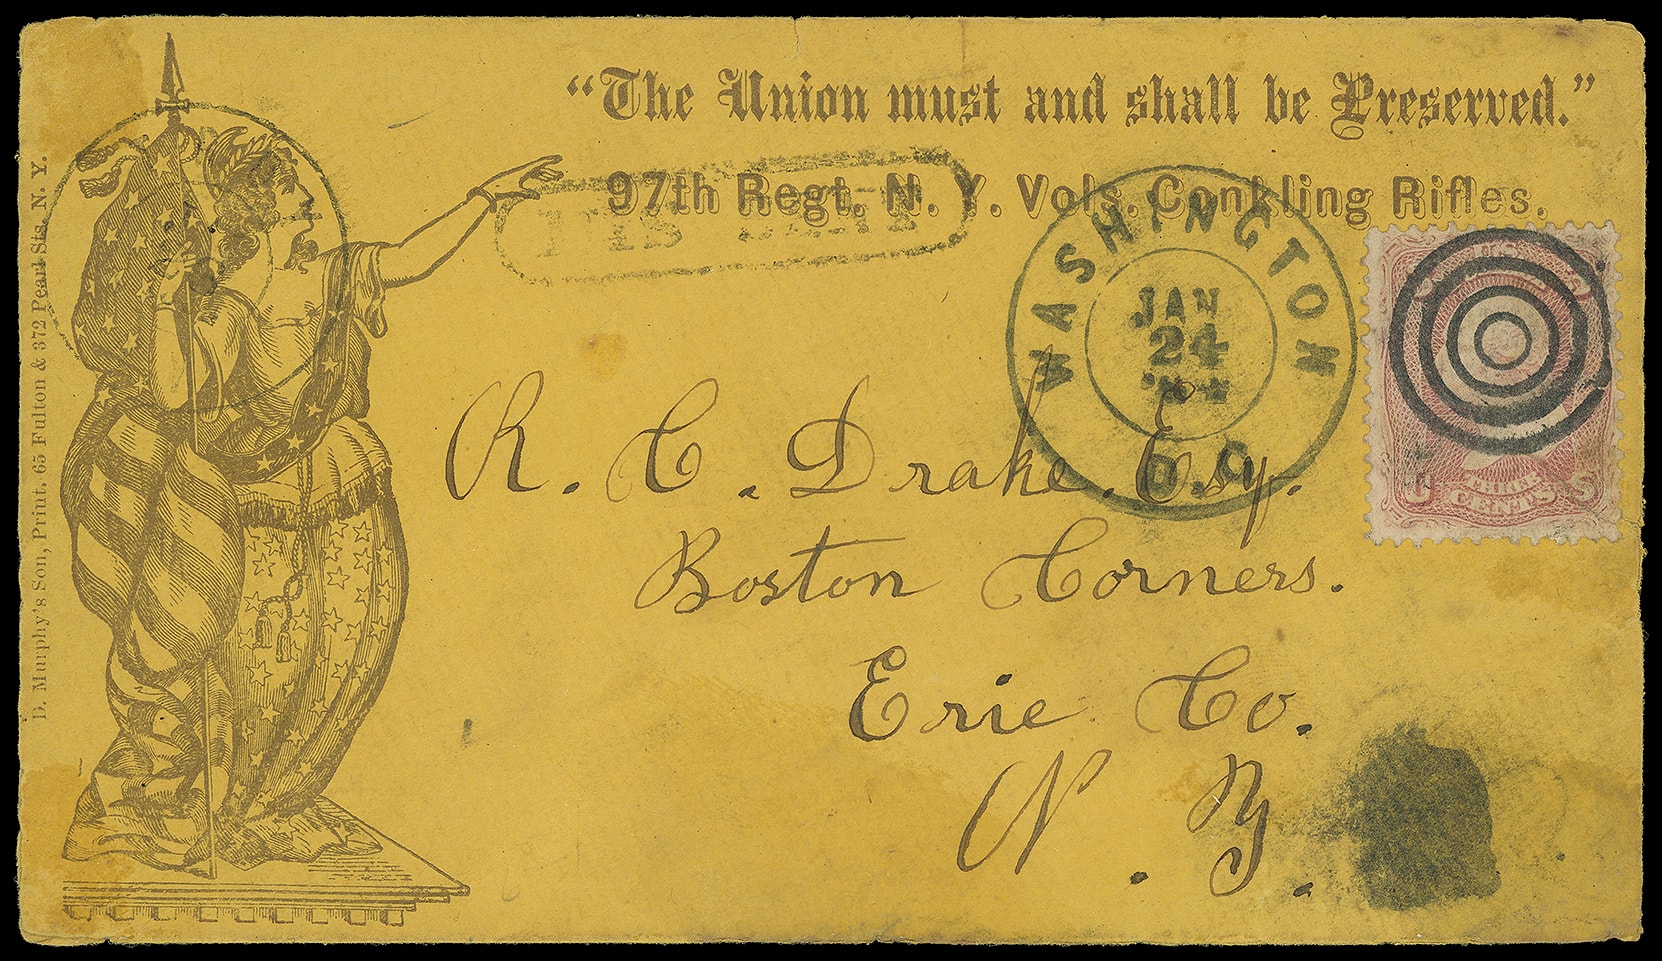 "The Union must and shall be Preserved."
97th Regt. N. Y. Vols. Conkling Rifles.
WASHINGTON
JAN
24
D.C.
U.S.
THREE
CENTS
R. C. Drake. Esq.
Boston Corners.
Erie Co.
N. Y.
D. Murphy's Son, Print. 65 Fulton & 372 Pearl Sts. N. Y.